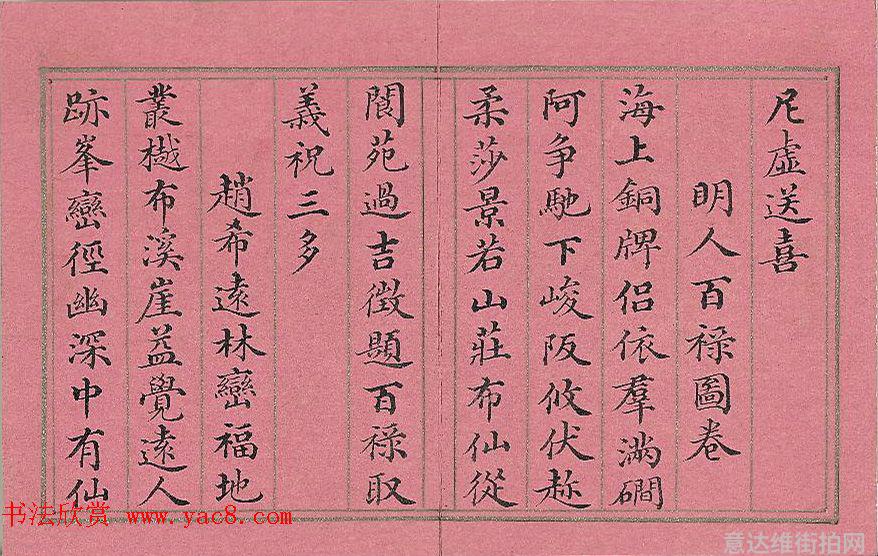 尼虛送喜
明人百祿圖卷
海上銅牌侶依羣滿磵
阿爭馳下峻阪攸伏赼
柔莎景若山莊布仙從
閬苑過吉徵題百祿取
義祝三多
趙希遠林巒福地
叢樾布溪崖益覺遠人
跡峯巒徑幽深中有仙
书法欣赏 www.yac8.com
意达维街拍网